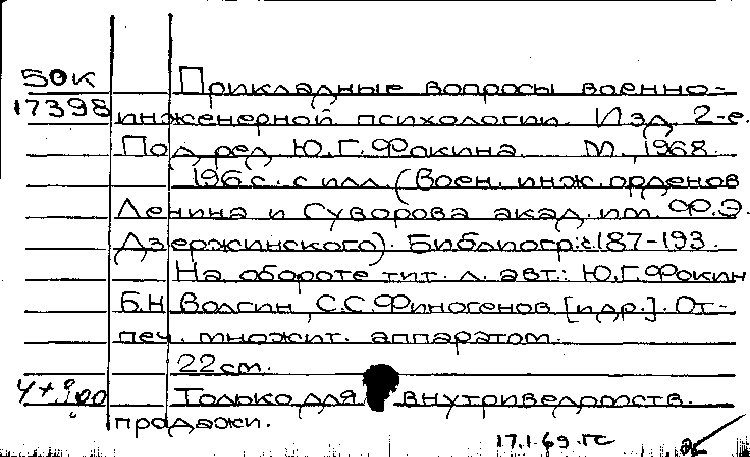 50К Прикладные вопросы военно-
17398 инженерной психологии. Изд. 2-е.
Под ред. Ю.Г.Фокина. М., 1968.
196 с. с илл. (Воен. инж. орденов
Ленина и Суворова акад. им. Ф.Э.
Дзержинского). Библиогр.: с 187-193.
На обороте тит. л. авт.: Ю.Г.Фокин
Б.Н Волгин, С.С.Финогенов [и др.]. От-
печ. множит. аппаратом.
22 см.
Только для внутриведомств.
продажи.
17.1.69. ГС